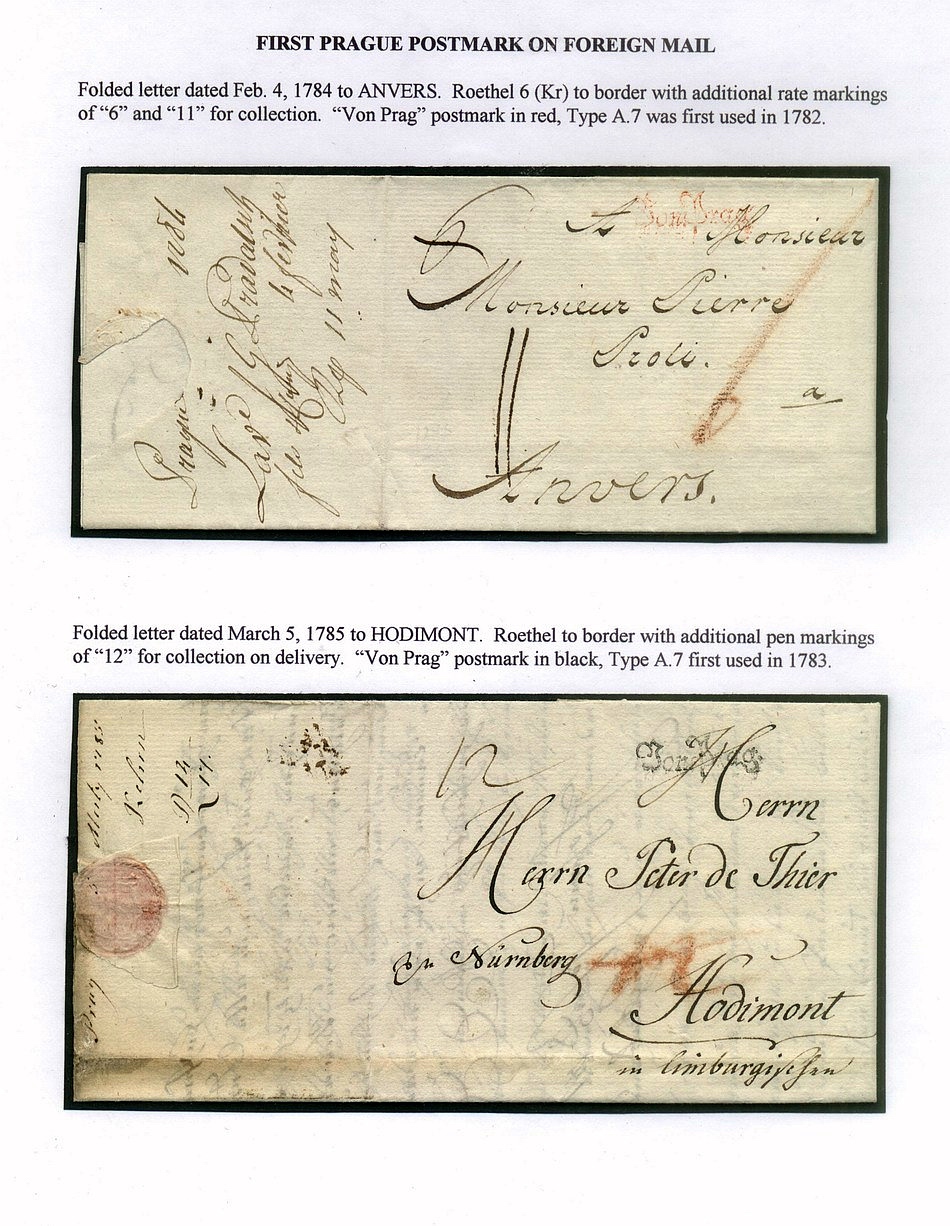 FIRST PRAGUE POSTMARK ON FOREIGN MAIL
Folded letter dated Feb. 4, 1784 to ANVERS. Roethel 6 (Kr) to border with additional rate markings
of “6” and “11” for collection. “Von Prag” postmark in red, Type A.7 was first used in 1782.
Prague 1784
11 may
6
Von Prag
A Monsieur
Monsieur Pierre
Proli.
11
a
Anvers.
Folded letter dated March 5, 1785 to HODIMONT. Roethel to border with additional pen markings
of “12” for collection on delivery. “Von Prag” postmark in black, Type A.7 first used in 1783.
Prag 5 1785
12
Von Prag
Herrn
Herrn Peter de Thier
Nürnberg
Hodimont
in limburgischen